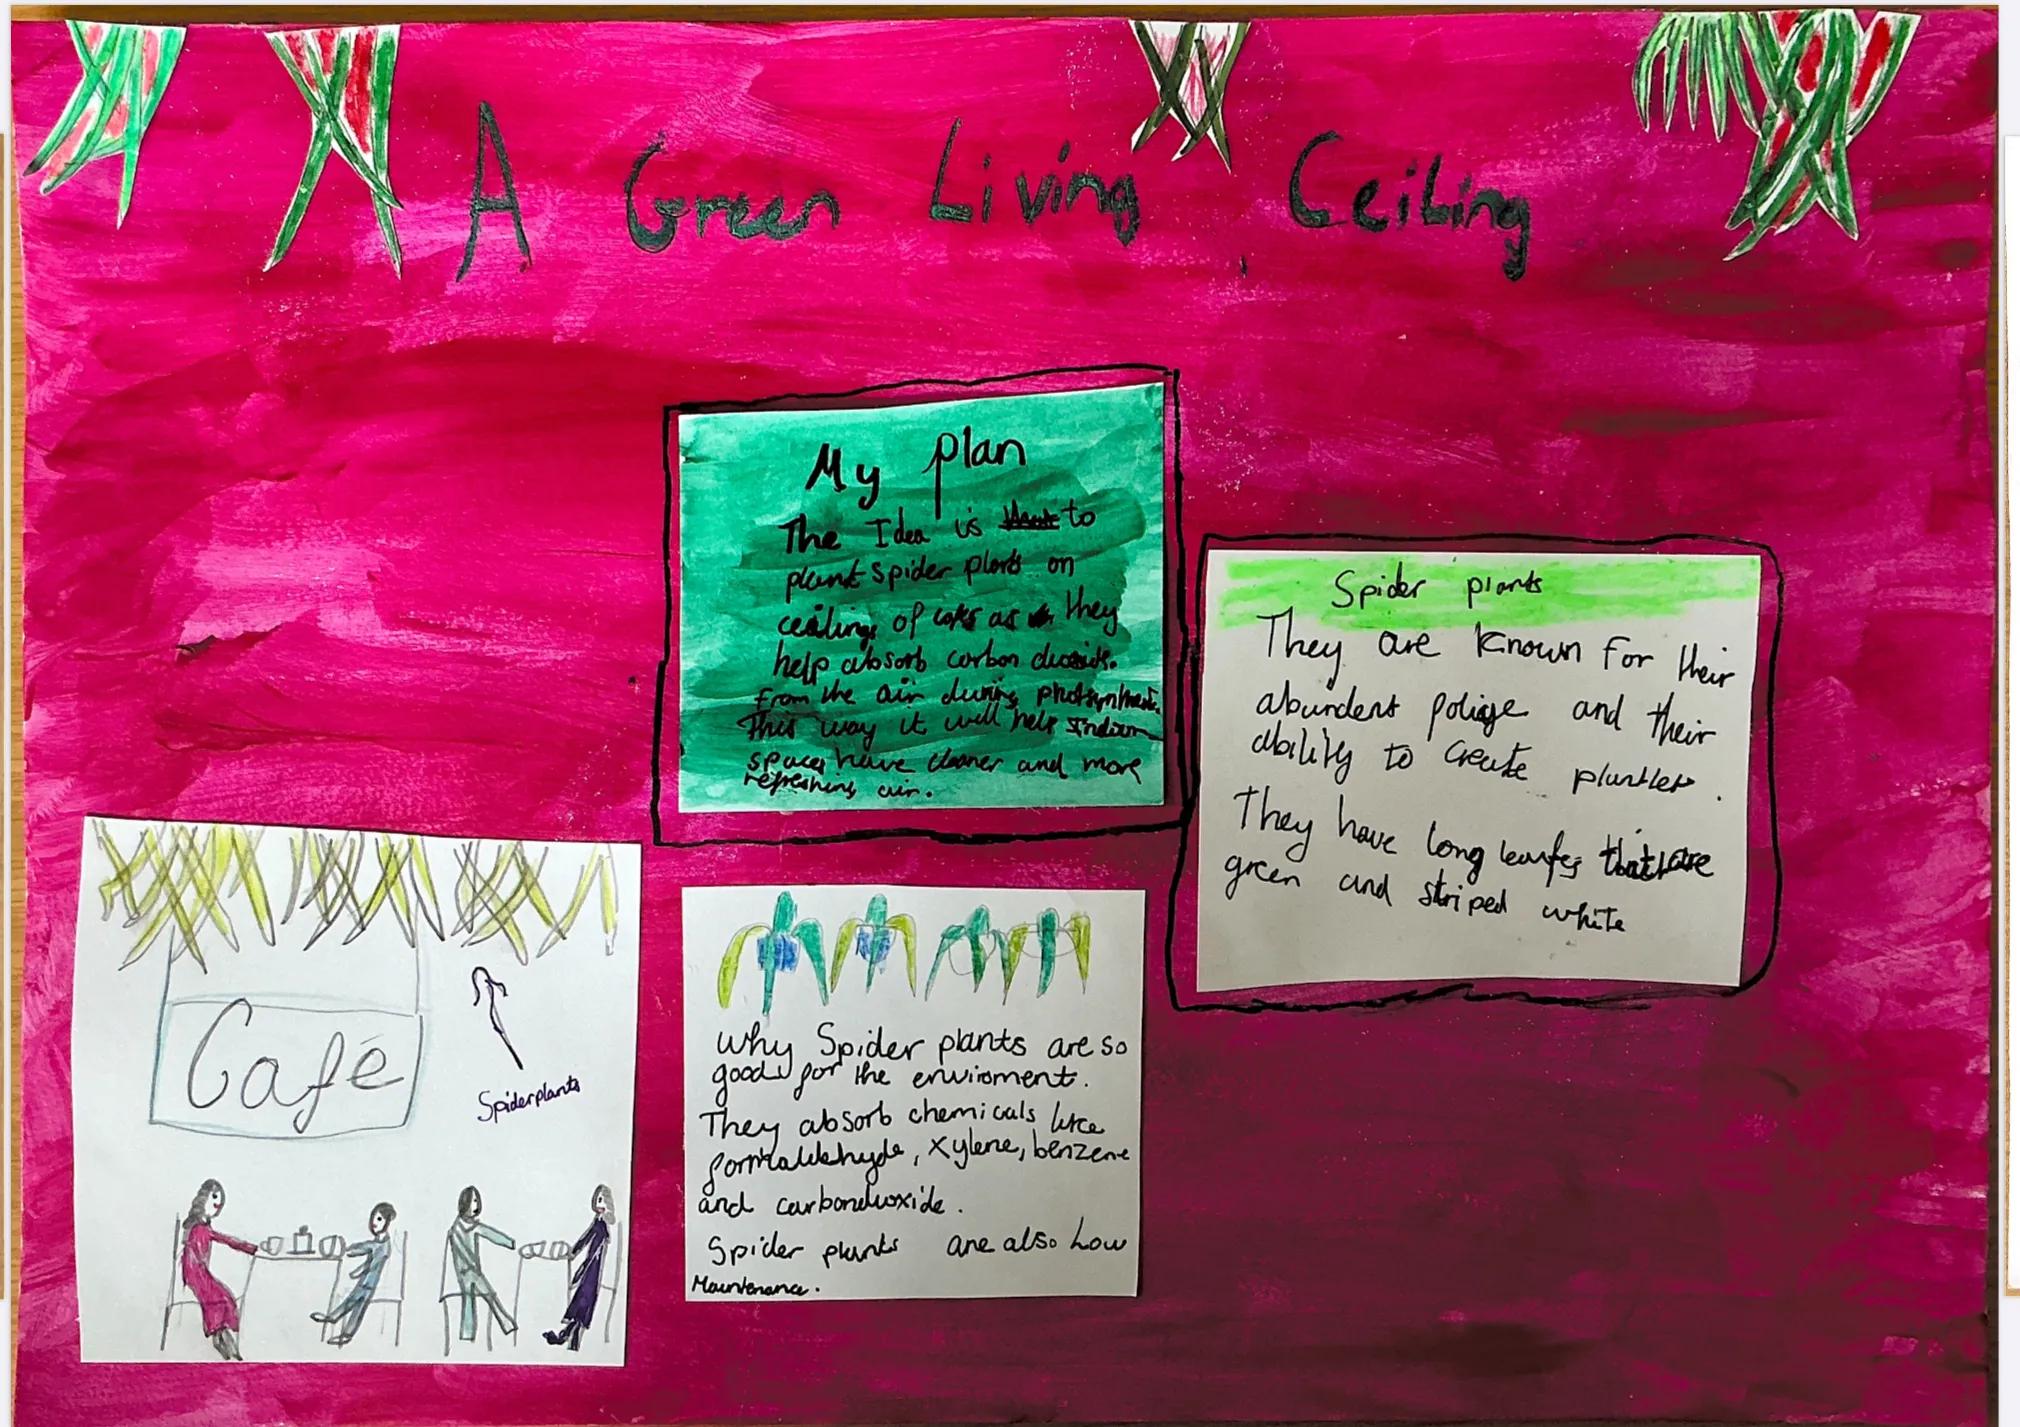 A Green Living Ceiling
My plan
The Idea is to
plant spider plants on
ceilings of cafes as they
help absorb carbon dioxide.
From the air during photosynthesis.
This way it will help Indoor
spaces have cleaner and more
refreshing air.
Spider plants
They are known For their
abundent foliage and their
ability to create plantlets.
They have long leafes that are
green and striped white
Café
Spiderplants
Why Spider plants are so
good for the enviroment.
They absorb chemicals like
formaldehyde, xylene, benzene
and carbondioxide.
Spider plants are also Low
Maintenance.